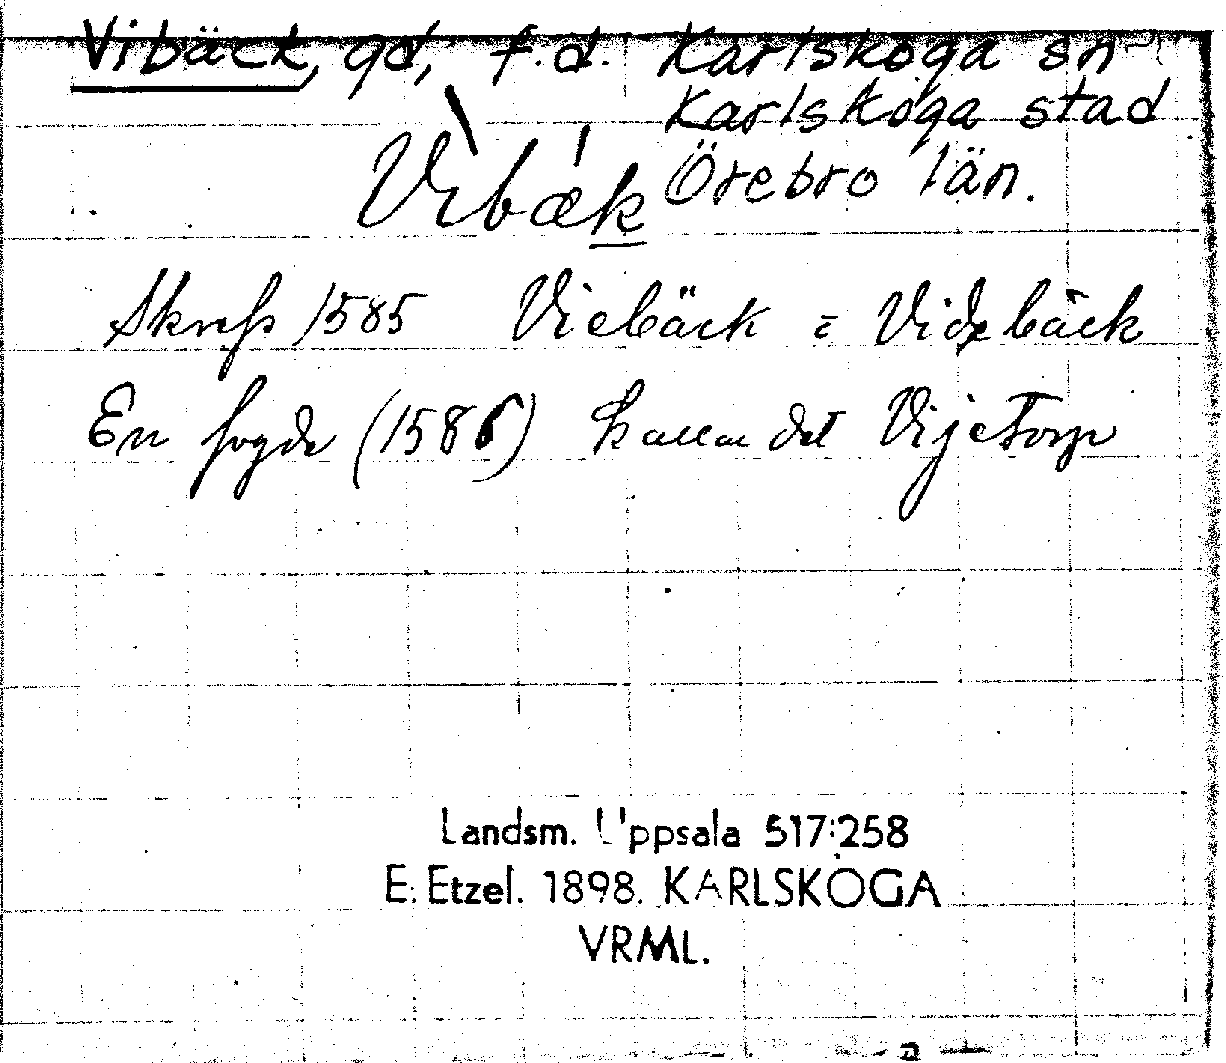 Vibäck, gd, f.d. Karlskoga sn
Karlskoga stad
Örebro län.
Vìbǽk
Skrefs 1585 Viebäck = Videbäck
En fogde (1586) kallar det Vijetorp
Landsm. Uppsala 517:258
E. Etzel. 1898. KARLSKOGA
VRML.